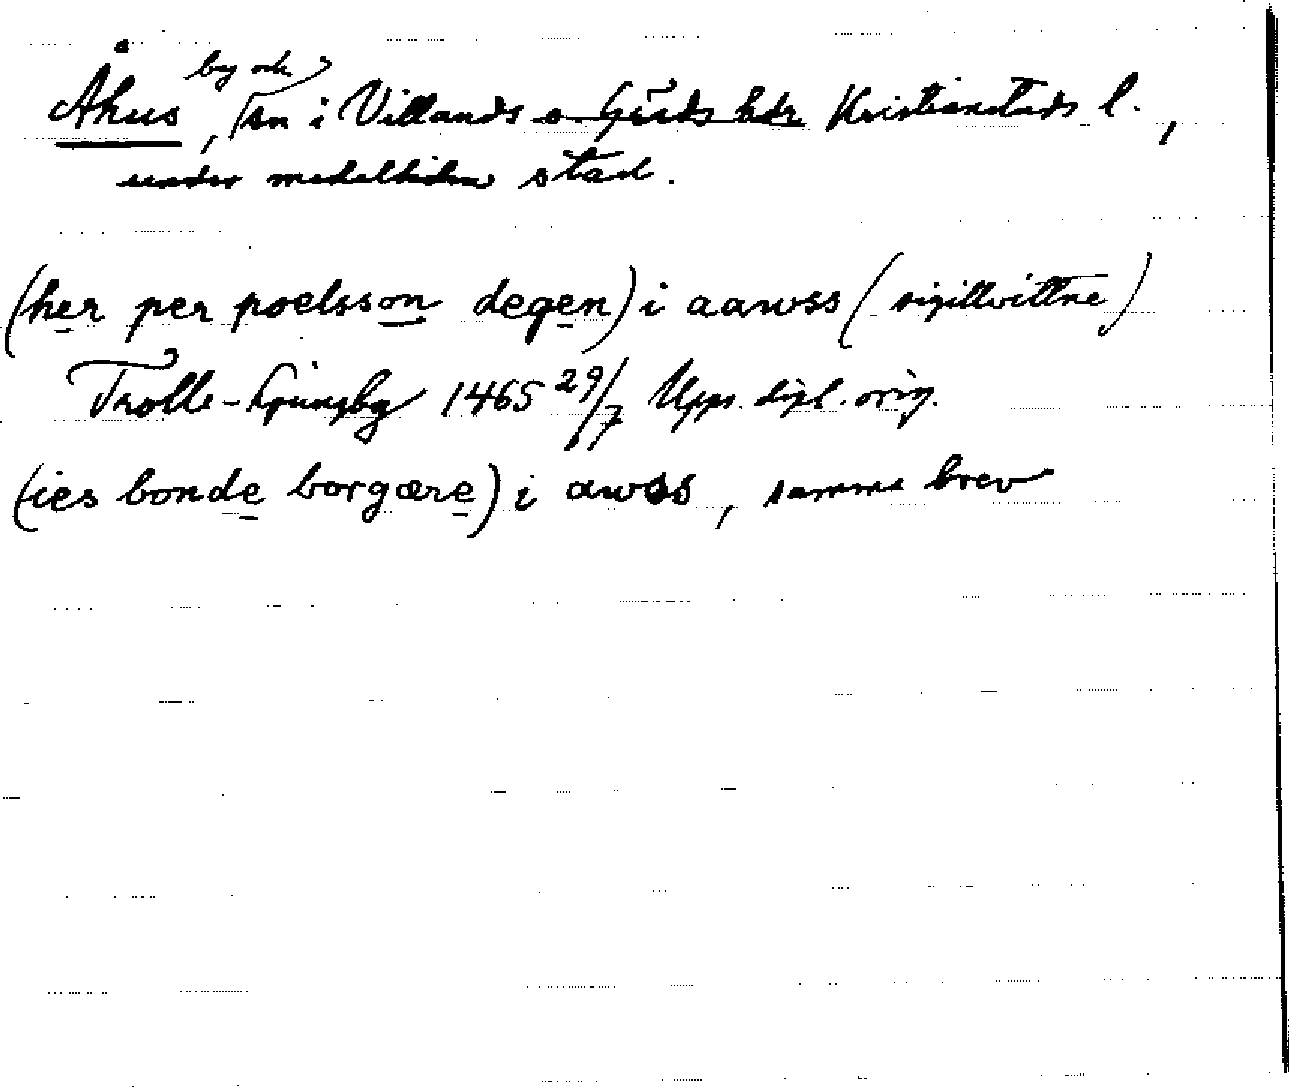 Åhus, by och sn i Villands o Gärds hdr Kristianstads l.,
under medeltiden stad.
(her per poelsson degen) i aawss (sigillvittne)
Trolle-Ljungby 1465 29/7 Upps. dipl. orig.
(ies bonde borgære) i awss, samma brev